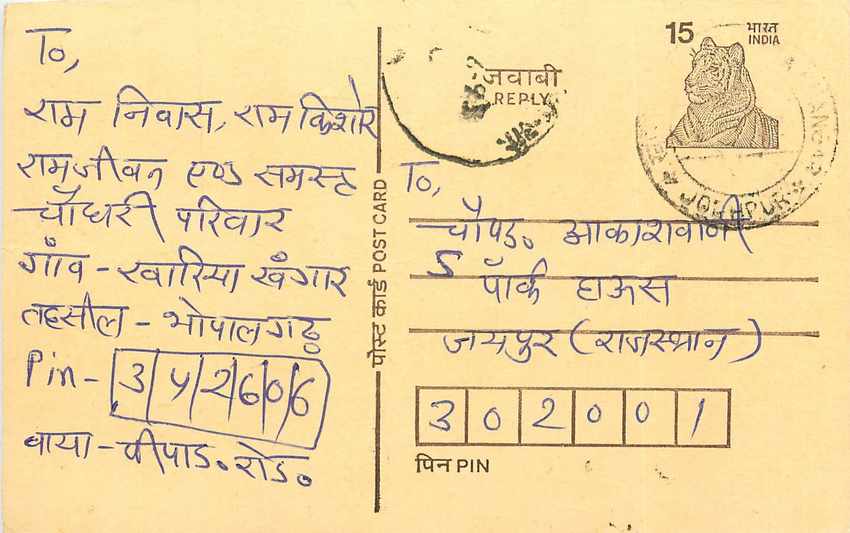 To,
राम निवास, राम किशोर
रामजीवन एण्ड समस्त
चौधरी परिवार
गाँव - खारिया खँगार
तहसील - भोपालगढ़
Pin - 342606
वाया - पीपाड़. रोड.
पोस्ट कार्ड POST CARD
जवाबी
REPLY
15
भारत
INDIA
JODHPUR
To,
चौपड़. आकाशवाणी
5 पॉर्क हाऊस
जयपुर (राजस्थान)
302001
पिन PIN